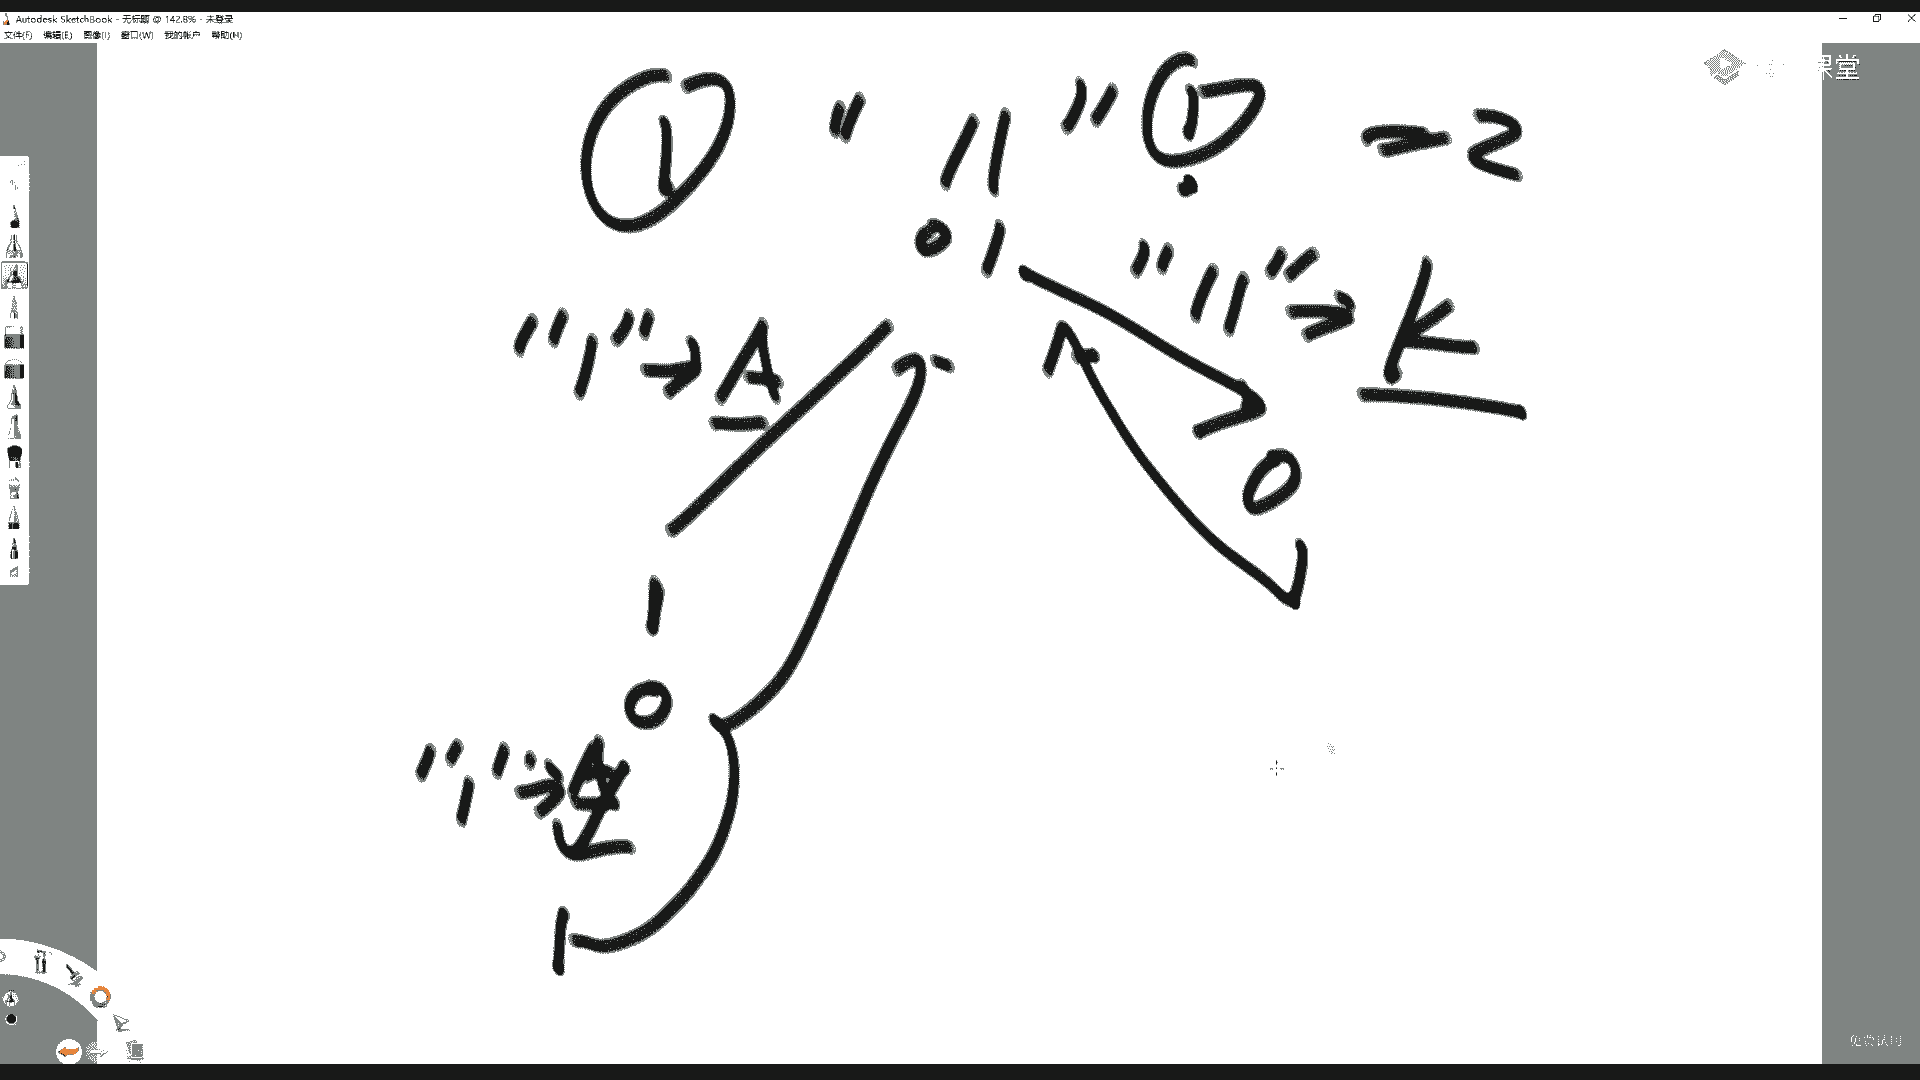 Autodesk SketchBook - 无标题 @ 142.8% - 未登录
文件(F) 编辑(E) 图像(I) 窗口(W) 我的帐户 帮助(H)
课堂
① "11" ① → 2
0 1
"1" → A
"11" → K
0
1
0
"1" →
1